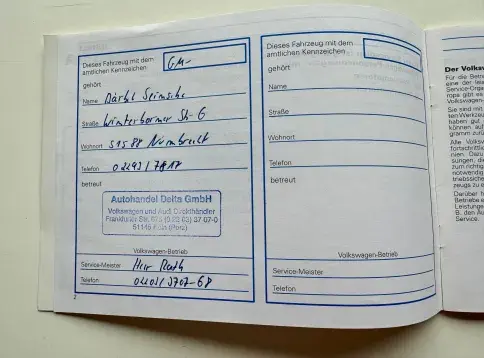 Dieses Fahrzeug mit dem
amtlichen Kennzeichen
GM-
gehört
Name
Straße Str. 6
Wohnort 51588 Nümbrecht
Telefon
betreut
Autohandel Delta GmbH
Volkswagen und Audi Direkthändler
Frankfurter Str.
51145 Köln (Porz)
Volkswagen-Betrieb
Service-Meister Herr
Telefon
2
Dieses Fahrzeug mit dem
amtlichen Kennzeichen
gehört
Name
Straße
Wohnort
Telefon
betreut
Volkswagen-Betrieb
Service-Meister
Telefon
Der Volksw
Für die Betre
eine der
Service-Orga
ropa gibt es
Volkswagen-
Sie sind mit
ten Werkzeu
haben gut
können auf
gramm zurü
Alle Volksw
fortschrittlic
nien. Dazu
sungen, die
zum richtig
notwendig
triebssiche
zeugs zu e
Darüber h
Betriebe e
Leistunge
B. den Au
Service.